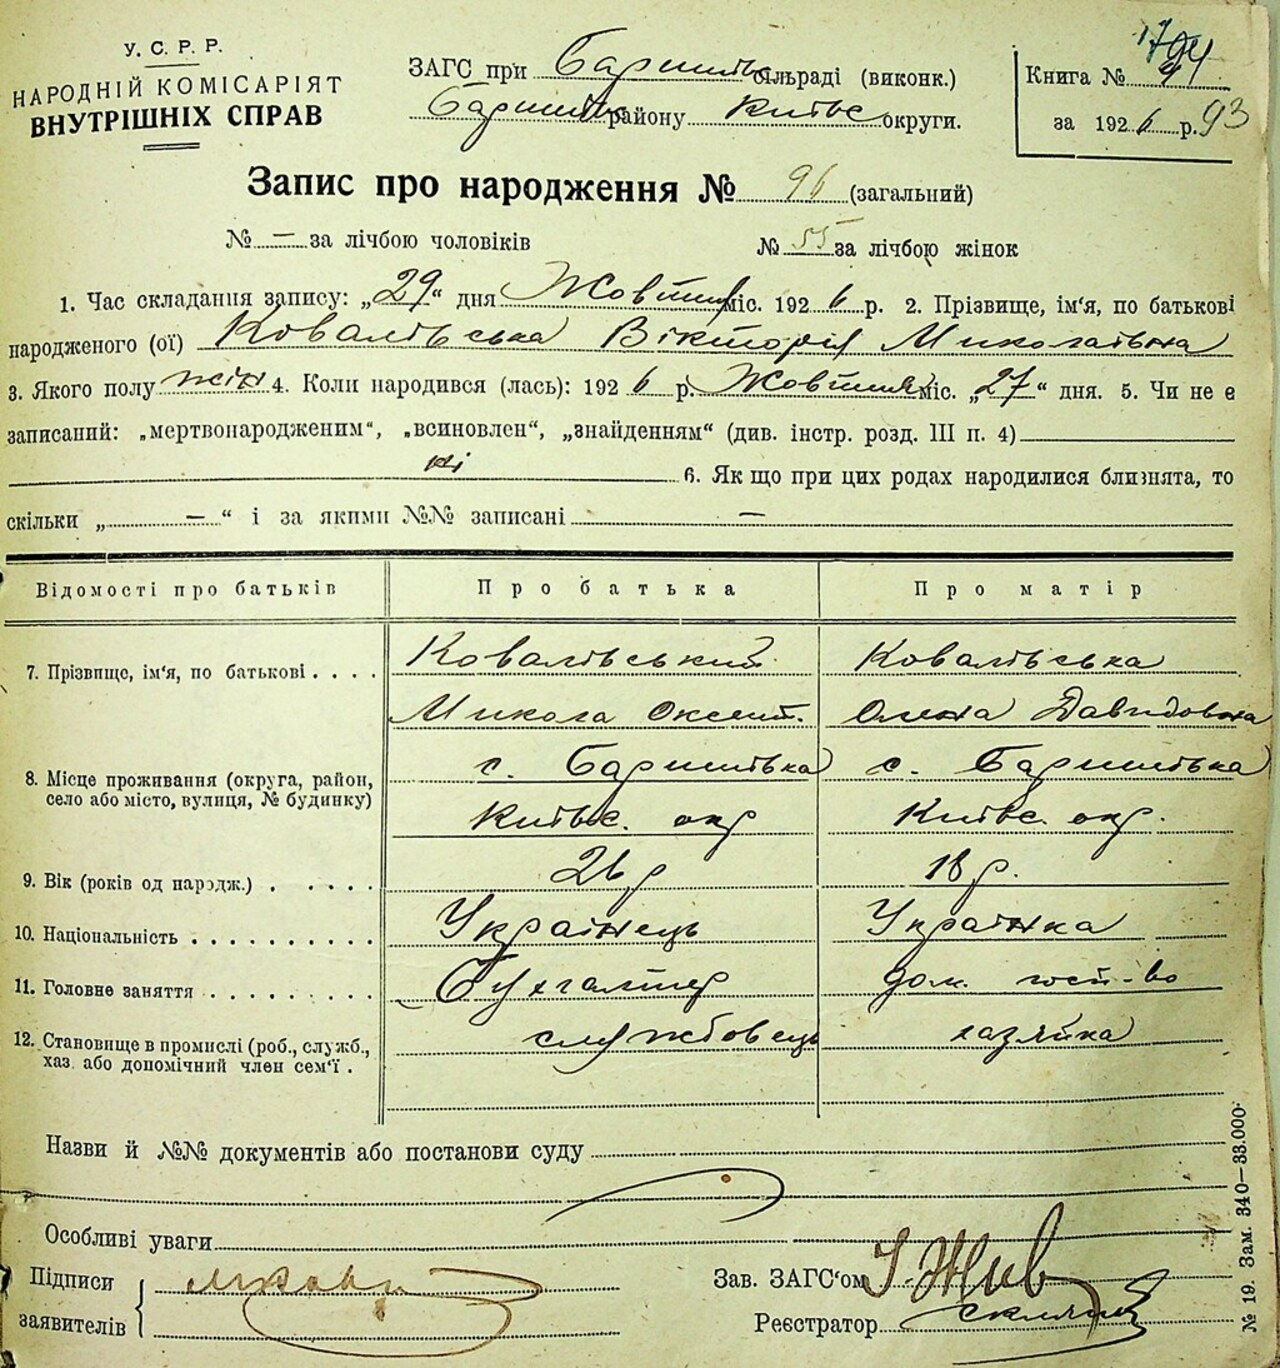 У. С. Р. Р.
НАРОДНІЙ КОМІСАРІЯТ
ВНУТРІШНІХ СПРАВ
ЗАГС при Баришівс сільраді (виконк.)
Баришівс району Київс округи.
Книга №
за 1926 р. 93
Запис про народження № 96 (загальний)
№ — за лічбою чоловіків № 55 за лічбою жінок
1. Час складання запису: „29“ дня Жовтня міс. 1926 р. 2. Прізвище, ім‘я, по батькові
народженого (ої) Ковалівська Вікторія Миколаївна
3. Якого полу жін 4. Коли народився (лась): 1926 р. Жовтня міс. „27“ дня. 5. Чи не є
записаний: „мертвонародженим“, „всиновлен“, „знайденням“ (див. інстр. розд. III п. 4)
ні 6. Як що при цих родах народилися близнята, то
скільки „ — “ і за якими №№ записані —
Відомості про батьків Про батька Про матір
7. Прізвище, ім‘я, по батькові . . . . Ковалівський Ковалівська
Микола Оксент. Олена Давидовна
8. Місце проживання (округа, район, с. Баришівка с. Баришівка
село або місто, вулиця, № будинку) Київс. окр Київс. окр.
9. Вік (років од народж.) . . . . . 26 р 18 р.
10. Національність . . . . . . . . . . Українець Українка
11. Головне заняття . . . . . . . . . Бухгалтер дом. госп-во
12. Становище в промислі (роб., служб., службовець хазяйка
хаз. або допомічний член сем‘ї .
Назви й №№ документів або постанови суду
Особливі уваги
Підписи
заявителів
Зав. ЗАГС‘ом
Реєстратор
№ 19. Зам. 340—33.000.